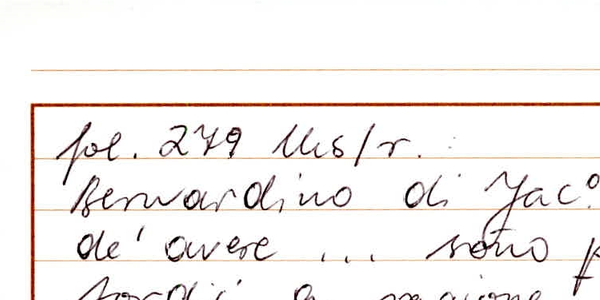 fol. 279 Ms/r.
Bernardino di Jac.º
de' avere ... sono
a ragione